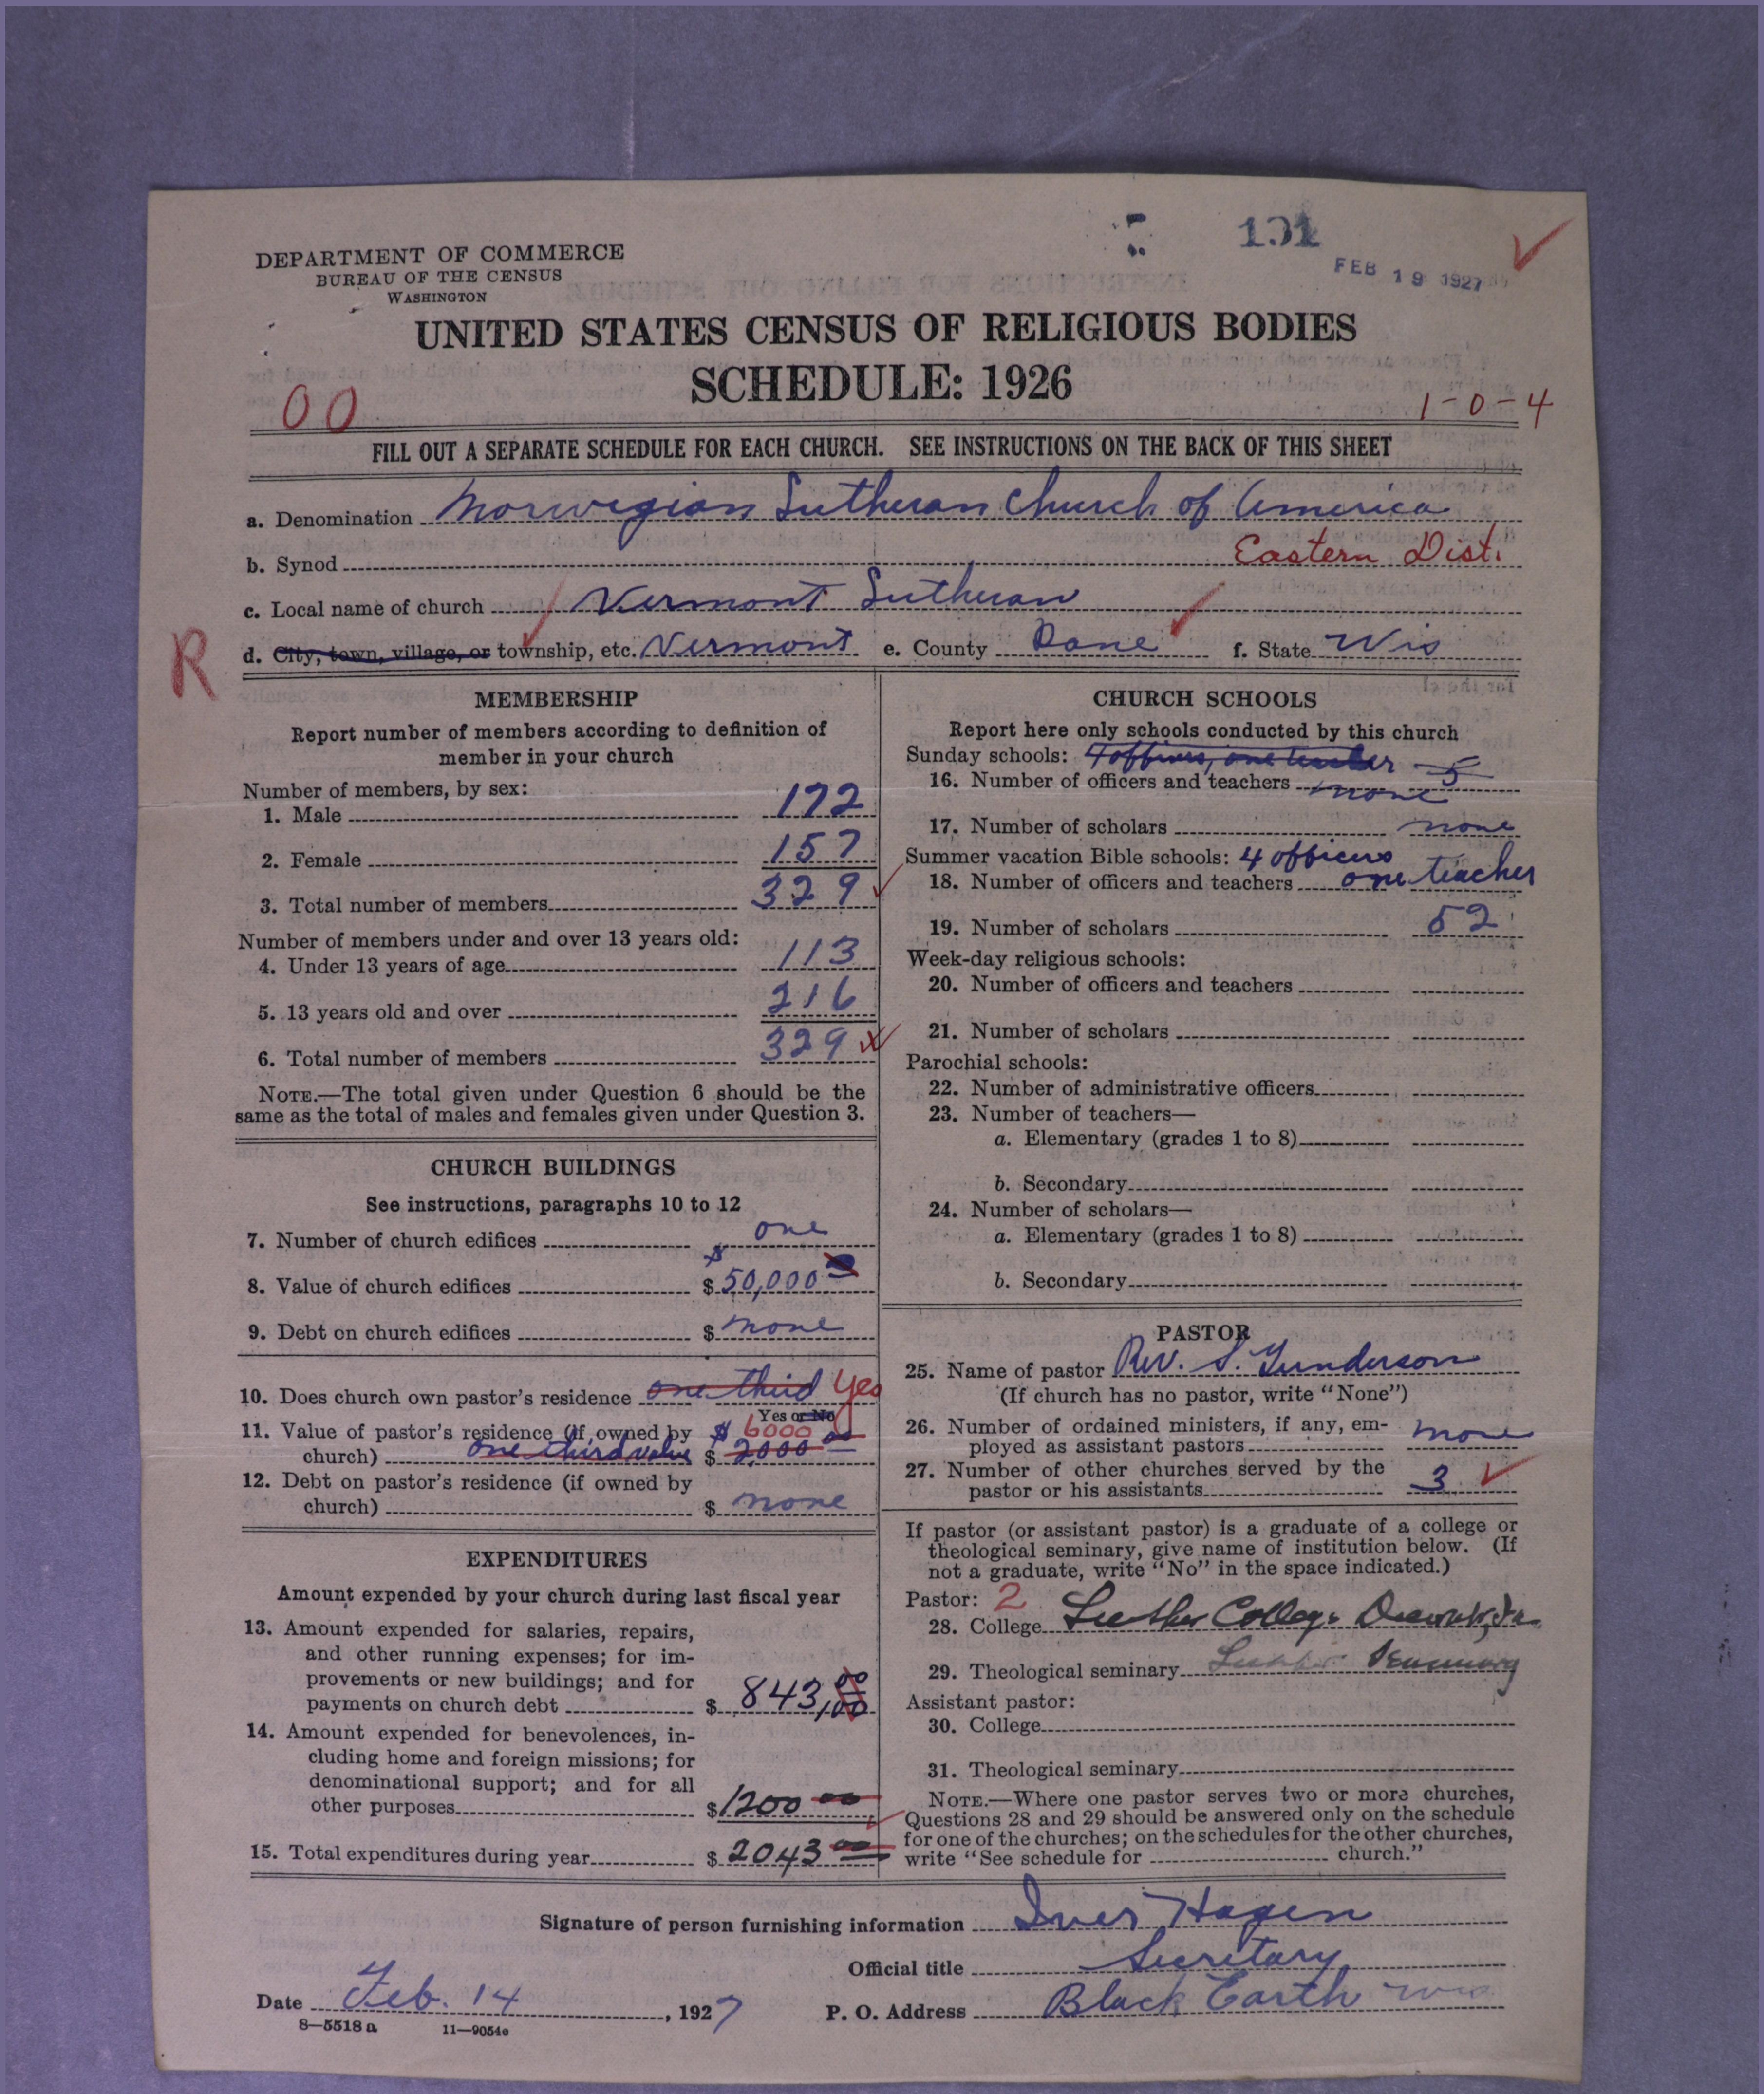 DEPARTMENT OF COMMERCE
BUREAU OF THE CENSUS
WASHINGTON
FEB 19 1927
UNITED STATES CENSUS OF RELIGIOUS BODIES
SCHEDULE: 1926
00
1-0-4
FILL OUT A SEPARATE SCHEDULE FOR EACH CHURCH. SEE INSTRUCTIONS ON THE BACK OF THIS SHEET
a. Denomination Norwegian Lutheran Church of America
b. Synod Eastern Dist.
c. Local name of church Vermont Lutheran
R
d. City, town, village, or township, etc. Vermont e. County Dane f. State Wis
MEMBERSHIP
Report number of members according to definition of
member in your church
Number of members, by sex:
1. Male 172
2. Female 157
3. Total number of members 329
Number of members under and over 13 years old:
4. Under 13 years of age 113
5. 13 years old and over 216
6. Total number of members 329
NOTE.—The total given under Question 6 should be the
same as the total of males and females given under Question 3.
CHURCH BUILDINGS
See instructions, paragraphs 10 to 12
7. Number of church edifices one
8. Value of church edifices $ 50,000
9. Debt on church edifices $ none
10. Does church own pastor's residence one third Yes
Yes or No
11. Value of pastor's residence (if owned by $ 6000
church) one third value $ 2000 00
12. Debt on pastor's residence (if owned by
church) $ none
EXPENDITURES
Amount expended by your church during last fiscal year
13. Amount expended for salaries, repairs,
and other running expenses; for im-
provements or new buildings; and for
payments on church debt $ 843,00
14. Amount expended for benevolences, in-
cluding home and foreign missions; for
denominational support; and for all
other purposes $ 1200 00
15. Total expenditures during year $ 2043 00
CHURCH SCHOOLS
Report here only schools conducted by this church
Sunday schools: 4 officers, one teacher 5
16. Number of officers and teachers none
17. Number of scholars none
Summer vacation Bible schools: 4 officers
18. Number of officers and teachers one teacher
19. Number of scholars 52
Week-day religious schools:
20. Number of officers and teachers
21. Number of scholars
Parochial schools:
22. Number of administrative officers
23. Number of teachers—
a. Elementary (grades 1 to 8)
b. Secondary
24. Number of scholars—
a. Elementary (grades 1 to 8)
b. Secondary
PASTOR
25. Name of pastor Rev. S. Gunderson
(If church has no pastor, write "None")
26. Number of ordained ministers, if any, em-
ployed as assistant pastors none
27. Number of other churches served by the
pastor or his assistants 3
If pastor (or assistant pastor) is a graduate of a college or
theological seminary, give name of institution below. (If
not a graduate, write "No" in the space indicated.)
Pastor: 2
28. College Luther College Decorah, Ia.
29. Theological seminary Luther Seminary
Assistant pastor:
30. College
31. Theological seminary
NOTE.—Where one pastor serves two or more churches,
Questions 28 and 29 should be answered only on the schedule
for one of the churches; on the schedules for the other churches,
write "See schedule for church."
Signature of person furnishing information Iver Hagen
Official title Secretary
Date Feb. 14, 1927 P. O. Address Black Earth Wis
8—5518 a 11—9054e